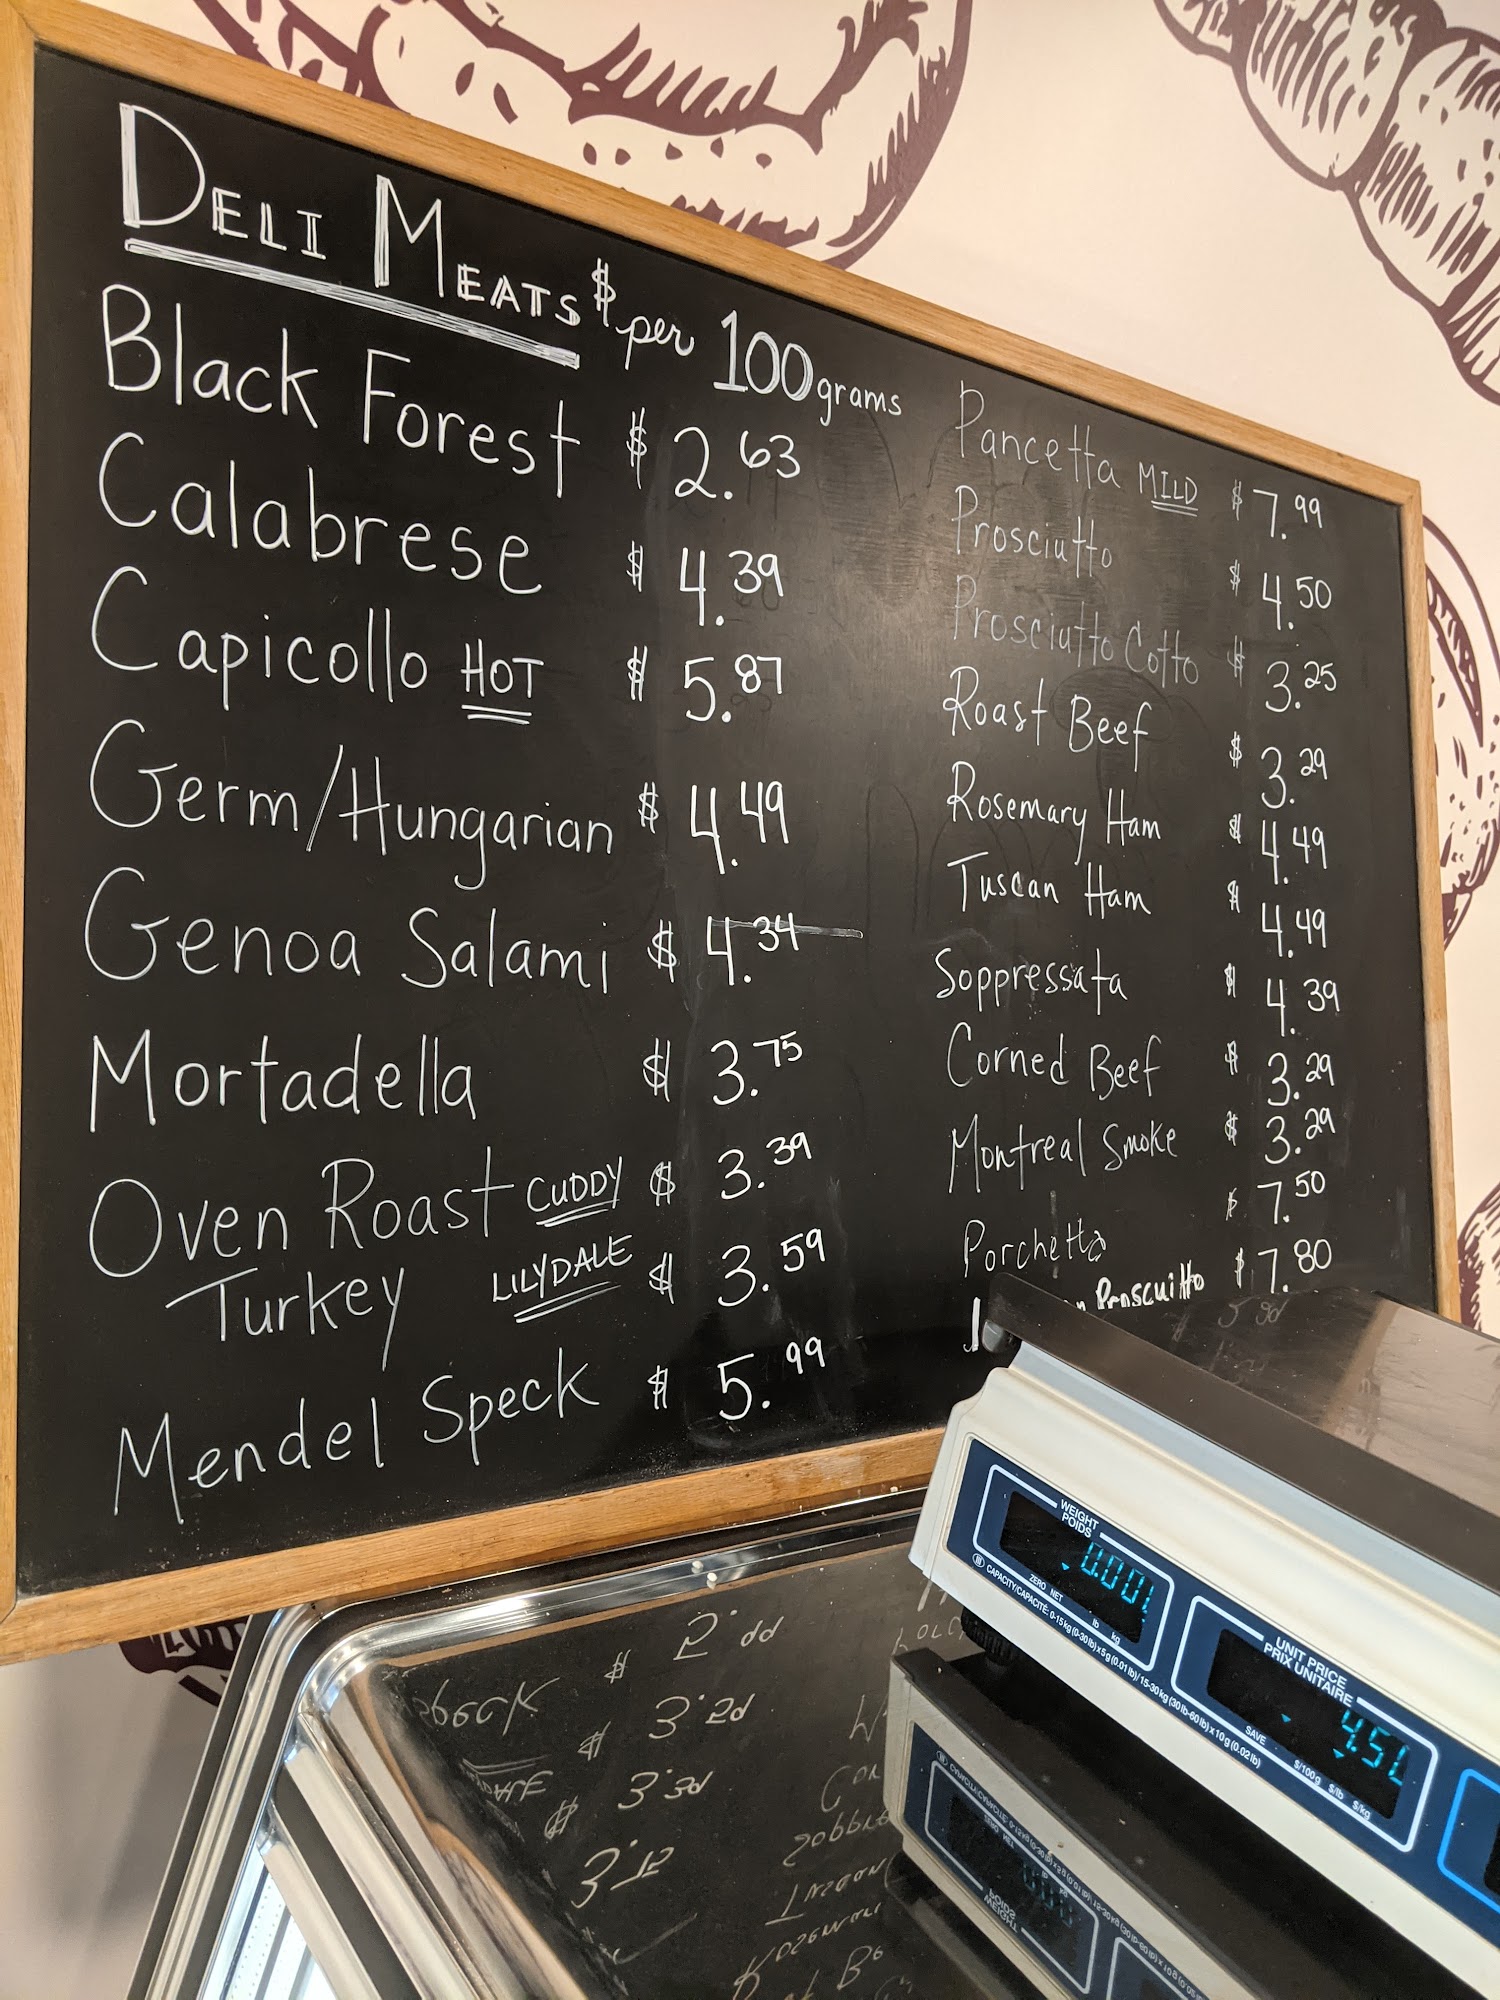 DELI MEATS $ per 100 grams
Black Forest $ 2.63
Calabrese $ 4.39
Capicollo HOT $ 5.87
Germ/Hungarian $ 4.49
Genoa Salami $ 4.34
Mortadella $ 3.75
Oven Roast CUDDY $ 3.39
Turkey LILYDALE $ 3.59
Mendel Speck $ 5.99
Pancetta MILD $ 7.99
Prosciutto $ 4.50
Prosciutto Cotto $ 3.25
Roast Beef $ 3.29
Rosemary Ham $ 4.49
Tuscan Ham $ 4.49
Soppressata $ 4.39
Corned Beef $ 3.29
Montreal Smoke $ 3.29
Porchetta $ 7.50
Proscuitto $ 7.80
WEIGHT
POIDS
ZERO NET lb kg
CAPACITY/CAPACITÉ: 0-15kg (0-30lb) x 5g (0.01lb)/15-30kg (30lb-60lb) x 10g (0.02lb)
UNIT PRICE
PRIX UNITAIRE
SAVE $/100g $/lb $/kg